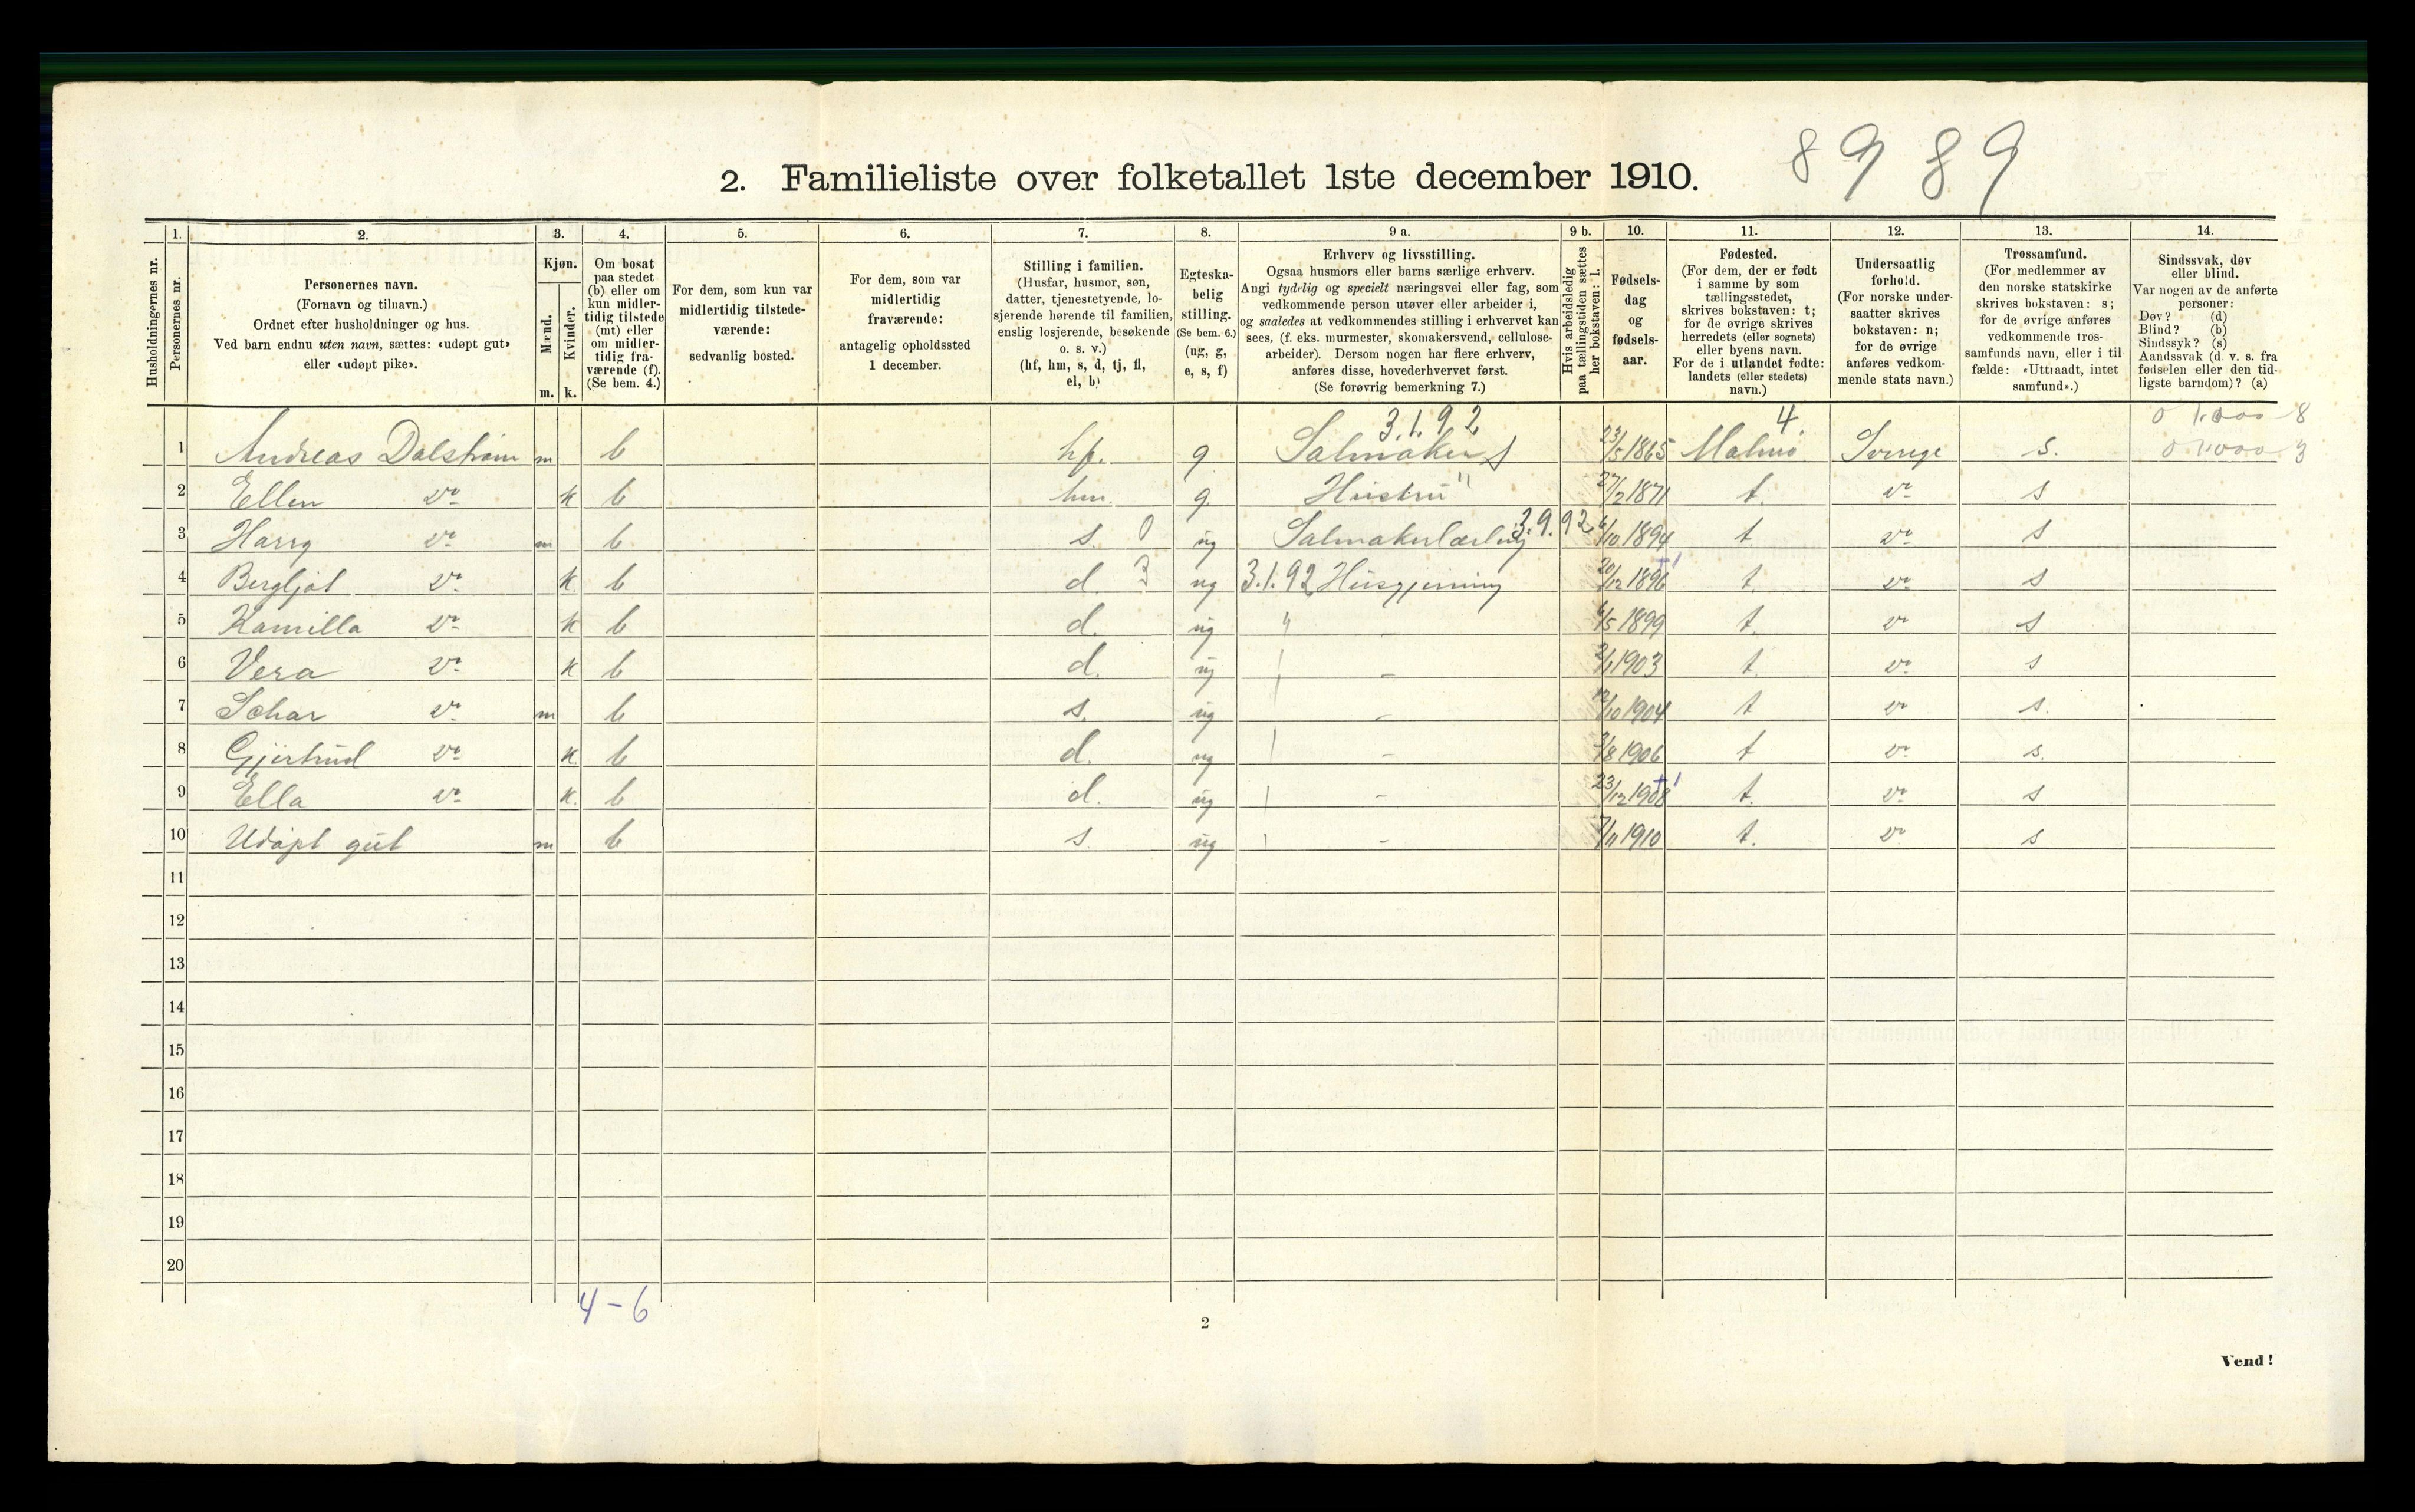 2. Familieliste over folketallet 1ste december 1910. 8 9 8 9
Husholdningernes nr.
1. Personernes nr.
2. Personernes navn.
(Fornavn og tilnavn.)
Ordnet efter husholdninger og hus.
Ved barn endnu uten navn, sættes: «udøpt gut»
eller «udøpt pike».
3. Kjøn.
Mænd. m.
Kvinder. k.
4. Om bosat
paa stedet
(b) eller om
kun midler-
tidig tilstede
(mt) eller
om midler-
tidig fra-
værende (f).
(Se bem. 4.)
5. For dem, som kun var
midlertidig tilstede-
værende:
sedvanlig bosted.
6. For dem, som var
midlertidig
fraværende:
antagelig opholdssted
1 december.
7. Stilling i familien.
(Husfar, husmor, søn,
datter, tjenestetyende, lo-
sjerende hørende til familien,
enslig losjerende, besøkende
o. s. v.)
(hf, hm, s, d, tj, fl,
el, b)
8. Egteska-
belig
stilling.
(Se bem. 6.)
(ug, g,
e, s, f)
9 a. Erhverv og livsstilling.
Ogsaa husmors eller barns særlige erhverv.
Angi tydelig og specielt næringsvei eller fag, som
vedkommende person utøver eller arbeider i,
og saaledes at vedkommendes stilling i erhvervet kan
sees, (f. eks. murmester, skomakersvend, cellulose-
arbeider). Dersom nogen har flere erhverv,
anføres disse, hovederhvervet først.
(Se forøvrig bemerkning 7.)
9 b. Hvis arbeidsledig
paa tællingstiden sættes
her bokstaven: l.
10. Fødsels-
dag
og
fødsels-
aar.
11. Fødested.
(For dem, der er født
i samme by som
tællingsstedet,
skrives bokstaven: t;
for de øvrige skrives
herredets (eller sognets)
eller byens navn.
For de i utlandet fødte:
landets (eller stedets)
navn.)
12. Undersaatlig
forhold.
(For norske under-
saatter skrives
bokstaven: n;
for de øvrige
anføres vedkom-
mende stats navn.)
13. Trossamfund.
(For medlemmer av
den norske statskirke
skrives bokstaven: s;
for de øvrige anføres
vedkommende tros-
samfunds navn, eller i til-
fælde: «Uttraadt, intet
samfund».)
14. Sindssvak, døv
eller blind.
Var nogen av de anførte
personer:
Døv? (d)
Blind? (b)
Sindssyk? (s)
Aandssvak (d. v. s. fra
fødselen eller den tid-
ligste barndom)? (a)
3.1.92 4. 0 1.000 8
1 Andreas Dalstrøm m b hf. g Salmaker s 23/5 1865 Malmø Sverige s. 0 1.000 3
2 Ellen do k b hm. g. Hustru " 27/2 1871 t. do s
3 Harry do m b s. 0 ug Salmakerlærling 3.9.92 6/10 1894 t do s
4 Bergljot do k b d. 3 ug 3.1.92 Husgjerning 20/12 1896 t. do s
5 Kamilla do k b d. ug " - 6/5 1899 t. do s
6 Vera do k b d. ug - 2/1 1903 t. do s
7 do m b s. ug - 12/10 1904 t do s.
8 Gjertrud do k b d. ug - 3/8 1906 t do s.
9 Ella do k. b d. ug - 23/12 1908 t. do s
10 Udøpt gut m b s ug - 7/11 1910 t. do s
11
12
13
14
15
16
17
18
19
20
4 - 6
2
Vend!